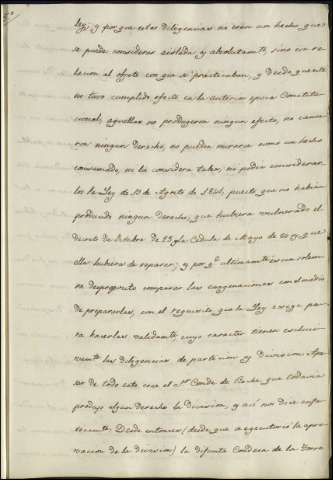 ley; y por que estas diligencias no eran un hecho que
se puede considerar aislada y absolutamte, sino con re-
lacion al objeto con que se practicaban, y desde que este
no tuvo cumplido efecto en la anterior epoca Constitu-
cional, aquellas no produgeron ningun efecto, no causa-
ron ningun derecho, no pueden mirarse como un hecho
consumado, ni la considera tales, ni podia considerar-
los la Ley de 19 de Agosto de 1841, puesto que no habian
producido ningun derecho, que hubiera vulnerado el
decreto de Octubre de 23 y la Cedula de Mayo de 24 y que
ella hubiera de reparar; y por q.e ultimamente es un solem-
ne desproposito comparar las enagenaciones con el medio
de prepararlas, con el requisito que la Ley exige pa-
ra hacerlas validamte, cuyo caracter tienen esclusi-
vamte las diligencias de particion y division. Ape-
sar de todo esto cree el Sor Conde de Parde que todavia
produjo algun derecho la division, y asi nos dice enfa-
ticamte: Desde entonces (desde que se ejecutorió la apro-
vacion de la division) la difunta Condesa de la